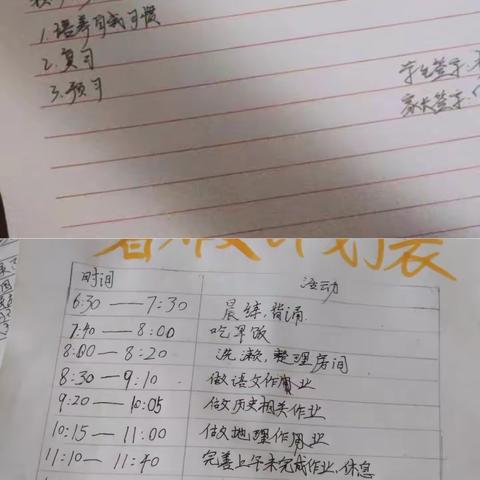 1.培养自我习惯
2.复习
3.预习
学生签字:
家长签字:
暑假计划表
时间 活动
6:30——7:30 晨练,背诵
7:40——8:00 吃早饭
8:00——8:20 洗漱,整理房间
8:30——9:10 做语文作业
9:20——10:05 做历史相关作业
10:15——11:00 做地理作业
11:10——11:40 完善上午未完成作业、休息